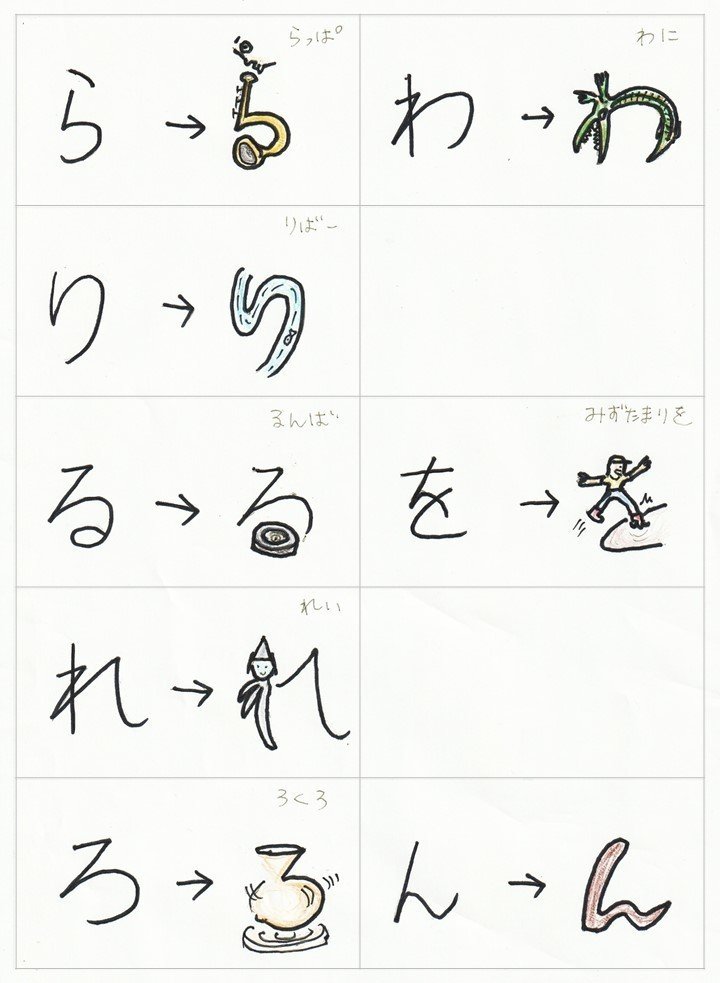 らっぱ
ら → ら
わに
わ → わ
りばー
り → り
るんば
る → る
みずたまりを
を → を
れい
れ → れ
ろくろ
ろ → ろ
ん → ん